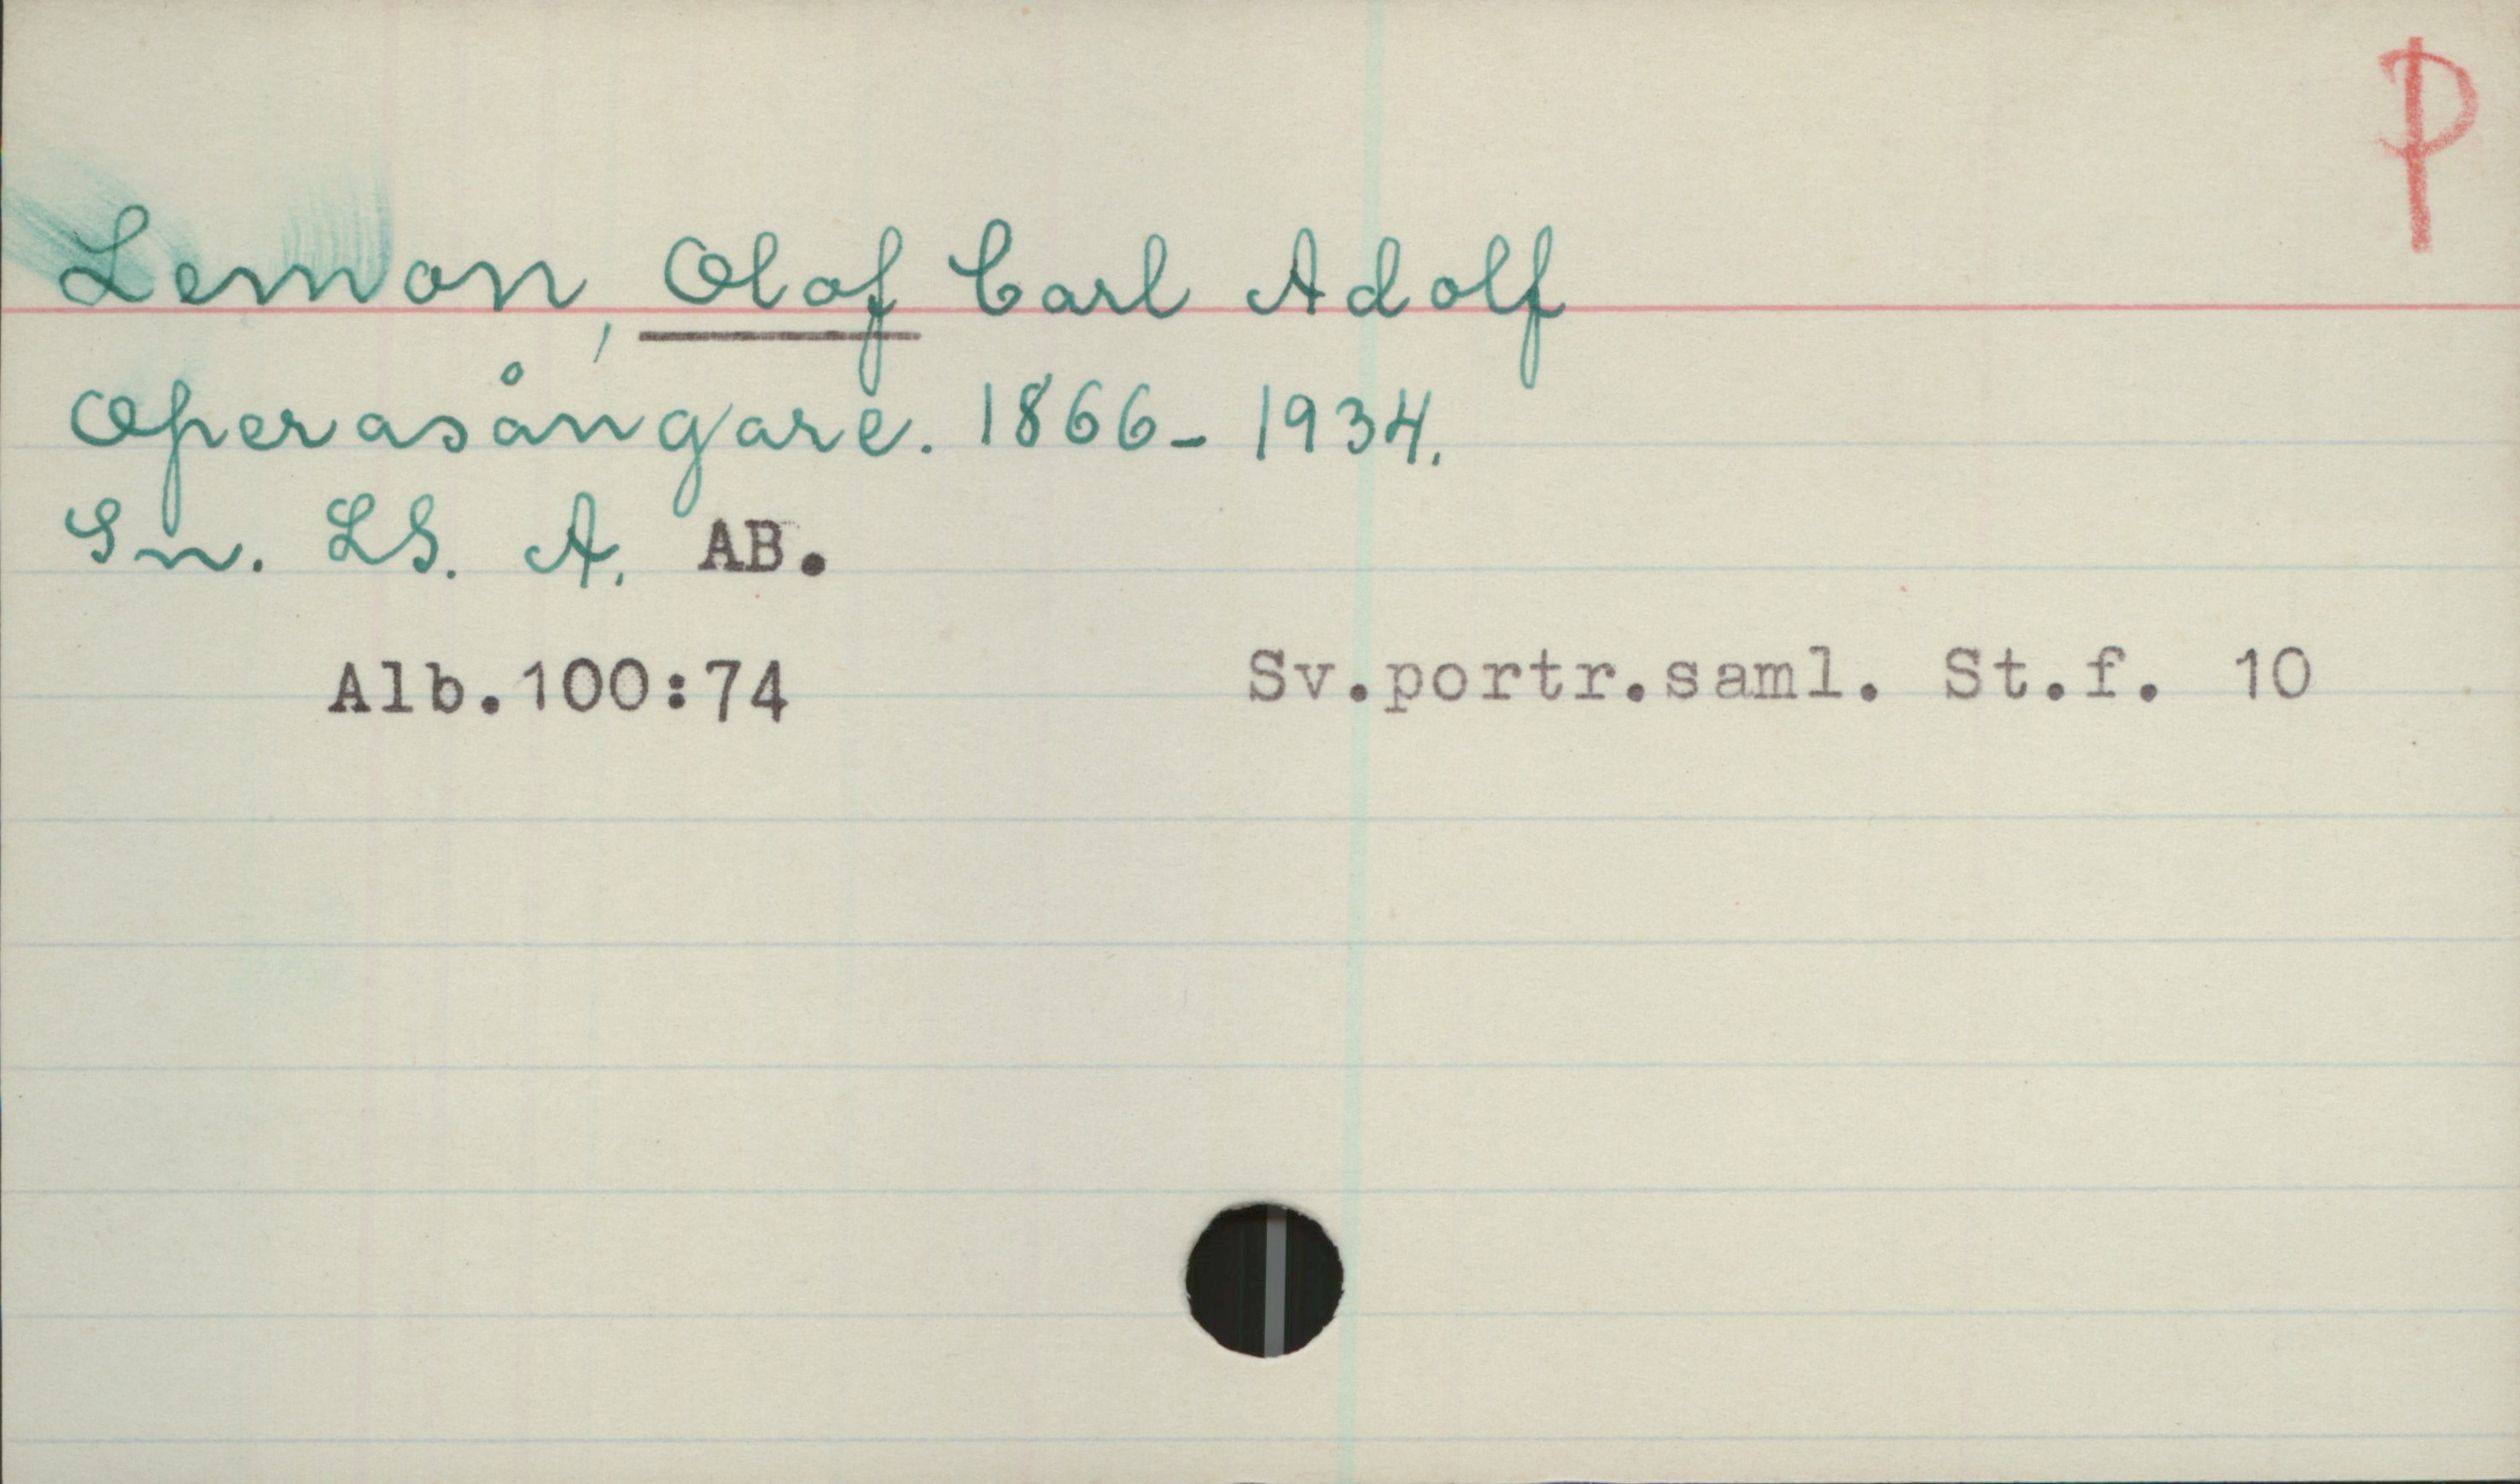 P
Lemon, Olof Carl Adolf
Operasångare. 1866-1934.
Sn. LS. A. AB.
Alb.100:74 Sv.portr.saml. St.f. 10